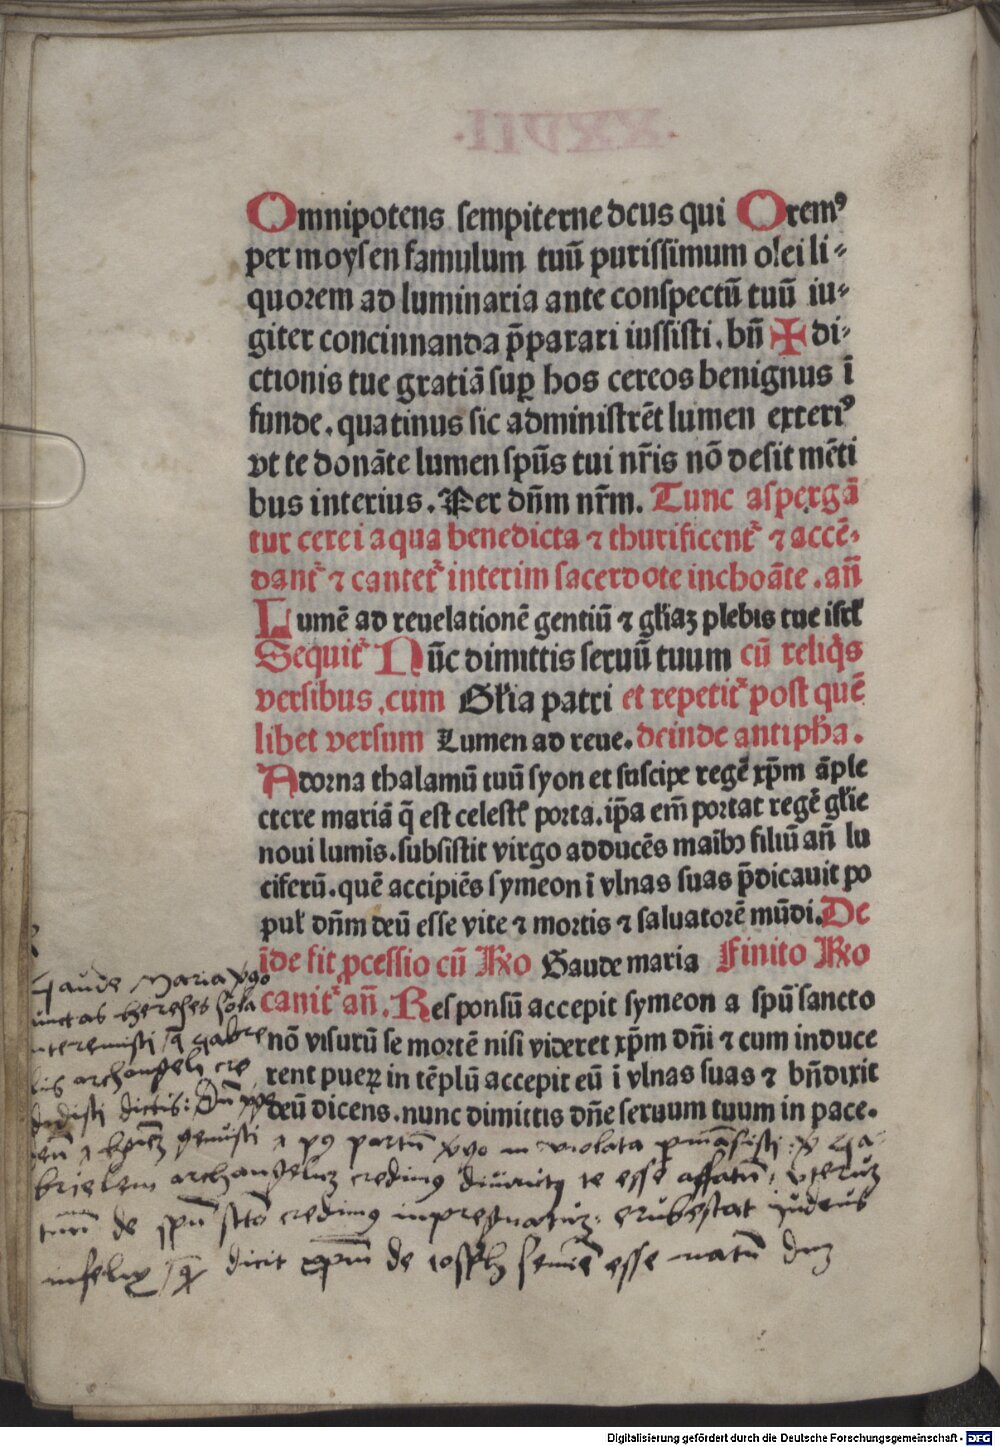 Omnipotens sempiterne deus qui Orem⁹
per moysen famulum tuū purissimum olei li⸗
quorem ad luminaria ante conspectū tuū iu⸗
giter concinnanda p̄parari iussisti. bn̄ ✠ di⸗
ctionis tue gratiā suꝑ hos cereos benignus ī
funde. quatinus sic administrēt lumen exteri⁹
vt te donāte lumen spūs tui nr̄is nō desit mēti
bus interius. Per dn̄m nr̄m. Tunc aspergā
tur cerei aqua benedicta ⁊ thurificent᷑ ⁊ accē⸗
dant᷑ ⁊ cantet᷑ interim sacerdote inchoāte. an̄
Lumē ad reuelationē gentiū ⁊ gl̄iaꝫ plebis tue isrl̄
Sequit᷑ Nūc dimittis seruū tuum cū reliq̇s
versibus. cum Gl̄ia patri et repetit᷑ post quē
libet versum Lumen ad reue. deinde antiph̄a.
Adorna thalamū tuū syon et suscipe regē xp̄m āple
ctere mariā q̄ est celestꝭ porta. ip̄a em̄ portat regē gl̄ie
noui lumīs. subsistit virgo adducēs maībꝰ filiū an̄ lu
ciferū. quē accipiēs symeon ī vlnas suas p̄dicauit po
pul̄ dn̄m deū esse vite ⁊ mortis ⁊ saluatorē mūdi. De
īde fit ꝓcessio cū Rͦo Gaude maria Finito Rͦo
canit᷑ an̄. Responsū accepit symeon a spū sancto
nō visurū se mortē nisi videret xp̄m dn̄i ⁊ cum induce
rent pueꝝ in tēplū accepit eū ī vlnas suas ⁊ bn̄dixit
deū dicens. nunc dimittis dn̄e seruum tuum in pace.
Gaude Maria v̄go
cunctas hereses sola
interemisti q̄ gabrie
lis archangeli cre
didisti dictis: Dū v̄go
deū ⁊ hoīeꝫ genuisti ⁊ pꝰ partū v̄go in violata pm̄āsisti: v̄ Ga⸗
brielem archangeluꝫ credimꝰ diuinitꝰ te esse affatū, vteruꝫ
tuū de spū scto credimꝰ inpregnatuꝫ: erubescat iudeus
infelix q̄ dicit xpm̄ de ioseph semīe esse natū